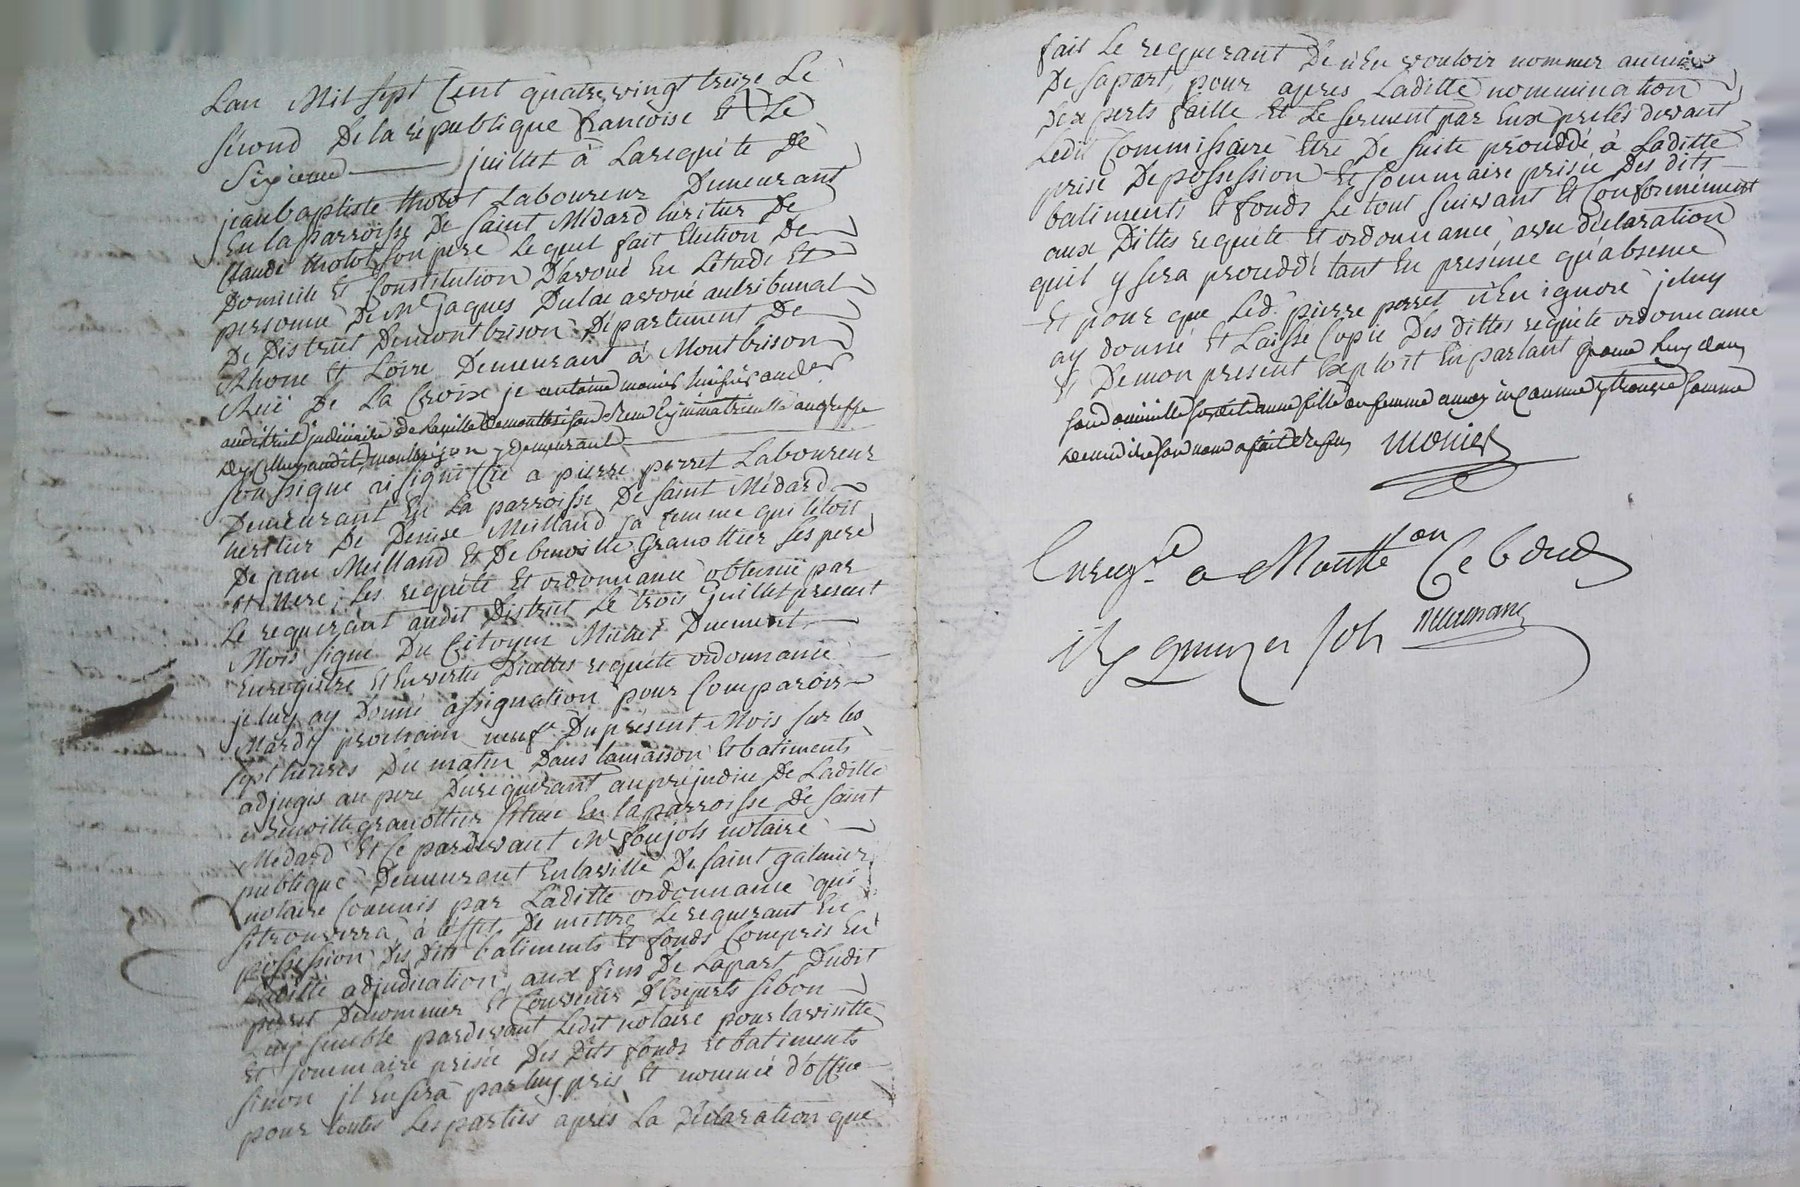 Lan Mil sept Cent quatre vingt treize Le
second De la république francoise Et Le
Sixieme juillet à La requête De
jean baptiste tholot Laboureur Demeurant
En la parroisse De Saint Médard héritier De
Claude tholot son pere Lequel fait Election De
Domicile Et Constitution D'avoué En L'étude Et
personne De Me jaques Dulac avoué au tribunal
De District De montbrison Département De
Rhone Et Loire Demeurant à Montbrison
Rue De La Croix je antoine monier huissier
au district judiciaire de la ville de montbrison au greffe
audit montbrison y demeurant
soussigné ai signiffié a pierre perret Laboureur
Demeurant En La parroisse De Saint Médard
heritier De Denise Meilland sa femme qui L'étoit
De jean Meilland Et De benoitte Granottier ses pere
Et Mere, Les requête Et ordonnance obtenue par
Le requérant audit District Le trois juillet present
Mois signé Du Citoyen Michel Dument
Enregistre Et En vertu Dicelles requête ordonnance
je luy ay Donné assignation pour Comparoir
Mardy prochain neuf Du présent Mois sur les
sept heures Du matin Dans la maison Et batiments
adjugés au pere Du requérant au préjudice De Laditte
benoitte granottier située En la parroisse De Saint
Médard Et Ce pardevant Me foujols notaire
publique Demeurant En la ville De Saint galmier
notaire Commis par Laditte ordonnance qui
s'trouverra à l'effet De mettre Le requérant En
possession Des Dits batiments Et fonds Compris En
Laditte adjudication, aux fins De La part Dudit
perret De nommer Et Convenir D'Experts si bon
Luy semble pardevant Ledit notaire pour la visitte
Et sommaire prisée Des Dits fonds Et batiments
sinon il En sera par luy pris Et nommé d'office
pour toutes Les parties après La Déclaration que
fait Le requerant De n'En vouloir nommer aucun
De sa part, pour après Laditte nommination
D'experts faitte Et Le serment par Eux prêtés devant
Ledit Commissaire Etre De suite procédé à Laditte
prise De possession Et sommaire prisée Des dits
batiments Et fonds Le tout suivant Et Conformément
aux Dittes requête Et ordonnance, avec déclaration
qu'il y sera procédé tant En présence qu'absence
Et pour que Led. pierre perret n'En ignore je luy
ay donné Et Laissé Copie Des dittes requête ordonnance
Et De mon present Exploit En parlant
son domicille une fille ou femme a moy inconnue somme
de me dire son nom a fait refus monier
Enregré a Montbon Ce
sols